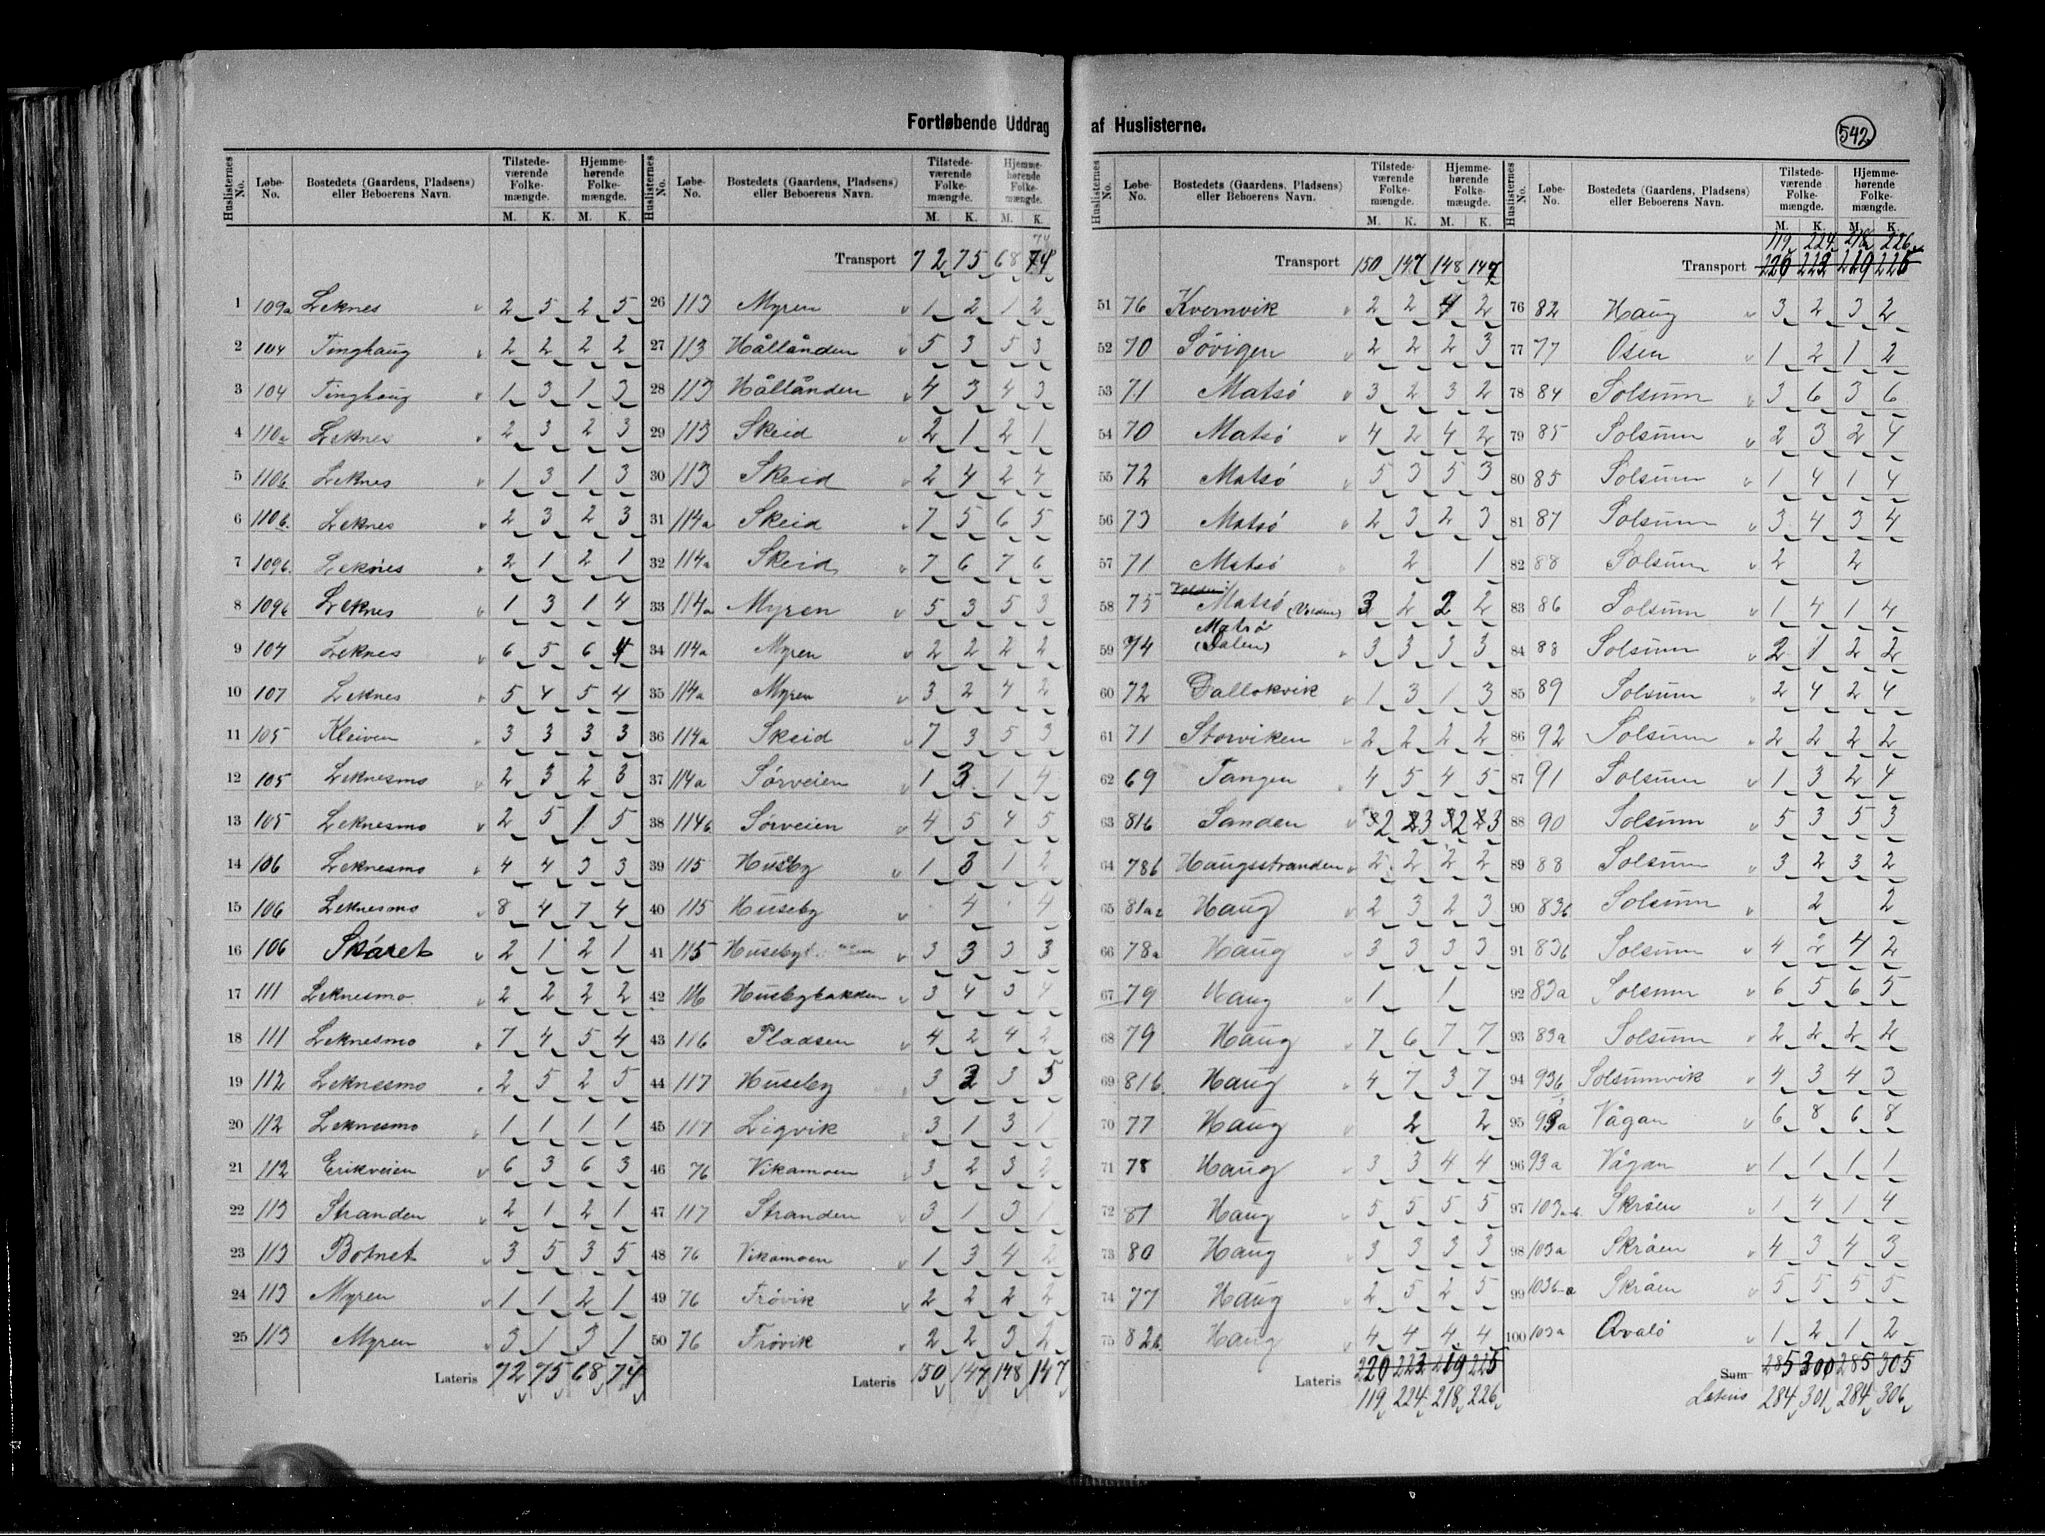 Fortløbende Uddrag af Huslisterne.
542
Huslisternes No. | Løbe-No. | Bostedets (Gaardens, Pladsens) eller Beboerens Navn. | Tilstedeværende Folkemængde. M. K. | Hjemmehørende Folkemængde. M. K.
1 109a Leknes 2 5 2 5
2 104 Tinghaug 2 2 2 2
3 104 Tinghaug 1 3 1 3
4 110a Leknes 2 3 2 3
5 110b Leknes 1 3 1 3
6 110b. Leknes 2 3 2 3
7 109b. Leknes 2 1 2 1
8 109b Leknes 1 3 1 4
9 107 Leknes 6 5 6 4
10 107 Leknes 5 4 5 4
11 105 Kleiven 3 3 3 3
12 105 Leknesmo 2 3 2 3
13 105 Leknesmo 2 5 1 5
14 106 Leknesmo 4 4 3 3
15 106 Leknesmo 8 4 7 4
16 106 Skåret 2 1 2 1
17 111 Leknesmo 2 2 2 2
18 111 Leknesmo 7 4 5 4
19 112 Leknesmo 2 5 2 5
20 112 Leknesmo 1 1 1 1
21 112 Erikveien 6 3 6 3
22 113 Stranden 2 1 2 1
23 113 Botnet 3 5 3 5
24 113 Myren 1 1 2 1
25 113 Myren 3 1 3 1
Lateris 72 75 68 74
Huslisternes No. | Løbe-No. | Bostedets (Gaardens, Pladsens) eller Beboerens Navn. | Tilstedeværende Folkemængde. M. K. | Hjemmehørende Folkemængde. M. K.
Transport 72 75 68 74
26 113 Myren 1 2 1 2
27 113 Hållånden 5 3 5 3
28 113 Hållånden 4 3 4 3
29 113 Skeid 2 1 2 1
30 113 Skeid 2 4 2 4
31 114a Skeid 7 5 6 5
32 114a Skeid 7 6 7 6
33 114a Myren 5 3 5 3
34 114a Myren 2 2 2 2
35 114a Myren 3 2 4 2
36 114a Skeid 7 3 5 3
37 114a Sørveien 1 3 1 4
38 114b Sørveien 4 5 4 5
39 115 Huseby 1 3 1 2
40 115 Huseby 4 4
41 115 3 3 3 3
42 116 Husebybakken 3 4 3 4
43 116 Pladsen 4 2 4 2
44 117 Huseby 3 2 3 3
45 117 Ligvik 3 1 3 1
46 76 Vikamoen 3 2 3 2
47 117 Stranden 3 1 3 1
48 76 Vikamoen 1 3 4 2
49 76 Frøvik 2 2 2 2
50 76 Frøvik 2 2 3 2
Lateris 150 147 148 147
Huslisternes No. | Løbe-No. | Bostedets (Gaardens, Pladsens) eller Beboerens Navn. | Tilstedeværende Folkemængde. M. K. | Hjemmehørende Folkemængde. M. K.
Transport 150 147 148 147
51 76 Kvernvik 2 2 4 2
52 70 Søvigen 2 2 2 3
53 71 Matsø 3 2 3 2
54 70 Matsø 4 2 4 2
55 72 Matsø 5 3 5 3
56 73 Matsø 2 3 2 3
57 71 Matsø 2 1
58 75 Matsø (Volden) 3 2 2 2
59 74 Matsø (Dalen) 3 3 3 3
60 72 Dallokvik 1 3 1 3
61 71 Storviken 2 2 2 2
62 69 Tangen 4 5 4 5
63 81b Sanden 2 3 2 3
64 78b Haugsstranden 2 2 2 2
65 81a Haug 2 3 2 3
66 78a Haug 3 3 3 3
67 79 Haug 1 1
68 79 Haug 7 6 7 7
69 81b. Haug 4 7 3 7
70 77 Haug 2 2
71 78 Haug 3 3 4 4
72 81 Haug 5 5 5 5
73 80 Haug 3 3 3 3
74 77 Haug 2 5 2 5
75 82b. Haug 4 4 4 4
Lateris 220 223 219 225
119 224 218 226
Huslisternes No. | Løbe-No. | Bostedets (Gaardens, Pladsens) eller Beboerens Navn. | Tilstedeværende Folkemængde. M. K. | Hjemmehørende Folkemængde. M. K.
119 224 218 226
Transport 220 223 219 225
76 82 Haug 3 2 3 2
77 77 Osen 1 2 1 2
78 84 Solsum 3 6 3 6
79 85 Solsum 2 3 2 4
80 85 Solsum 1 4 1 4
81 87 Solsum 3 4 3 4
82 88 Solsum 2 2
83 86 Solsum 1 4 1 4
84 88 Solsum 2 1 2 2
85 89 Solsum 2 4 2 4
86 92 Solsum 2 2 2 2
87 91 Solsum 1 3 2 4
88 90 Solsum 5 3 5 3
89 88 Solsum 3 2 3 2
90 83b Solsum 2 2
91 83b Solsum 4 2 4 2
92 83a Solsum 6 5 6 5
93 83a Solsum 2 2 2 2
94 93b Solsumvik 4 3 4 3
95 93a Vågan 6 8 6 8
96 93a Vågan 1 1 1 1
97 103a-b. Skråen 1 4 1 4
98 103a Skråen 4 3 4 3
99 103b-a Skråen 5 5 5 5
100 103a Qvalø 1 2 1 2
Sum 285 300 285 305
Lateris 284 301 284 306